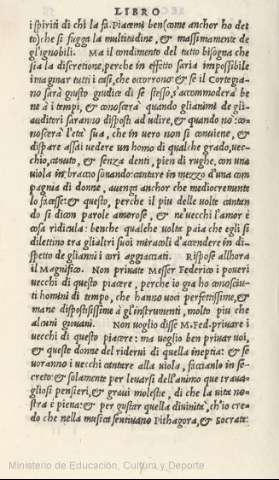 LIBRO
i spiriti di chi la fa. Piacemi ben (come anchor ho det
to) che si fugga la multitudine, & massimamente de
gl'ignobili. Ma il condimento del tutto bisogna che
sia la discretione, perche in effetto saria impossibile
imaginar tutti i casi, che occorrono & se il Cortegia-
no sarà giusto giudice di se stesso, s'accommoderà be
ne à i tempi, & conoscerà quando gli animi de gli
auditori saranno disposti ad udire, & quando nò: co-
noscerà l'età sua, che in uero non si conuiene, &
dispare assai uedere un homo di qualche grado, uec-
chio, canuto, & senza denti, pien di rughe, con una
uiola in braccio sonando: cantare in mezzo d'una com
pagnia di donne, auenga anchor che mediocremente
lo facesse: & questo, perche il piu delle uolte cantan
do si dicon parole amorose, & ne'uecchi l'amor è
cosa ridicula: benche qualche uolta paia che egli si
diletti tra gli altri suoi miracoli d'accendere in dis-
petto de gli anni i cori agghiacciati. Rispose allhora
il Magnifico. Non priuate Messer Federico i poueri
uecchi di questo piacere, perche io gia ho conosciu-
ti homini di tempo, che hanno uoci perfettissime, &
mane dispositissime à gl'instrumenti, molto piu che
alcuni giouani. Non uoglio disse M. Fed. priuare i
uecchi di questo piacere: ma uoglio ben priuar uoi,
& queste donne del riderui di quella ineptia: & se
uorranno i uecchi cantare alla uiola, faccianlo in se-
creto: & solamente per leuarsi dell'animo que traua-
gliosi pensieri, & graui molestie, di che la uita no-
stra è piena: & per gustar quella diuinità, ch'io cre-
do che nella musica sentiuano Pithagora, & Socrate.
Ministerio de Educación, Cultura y Deporte